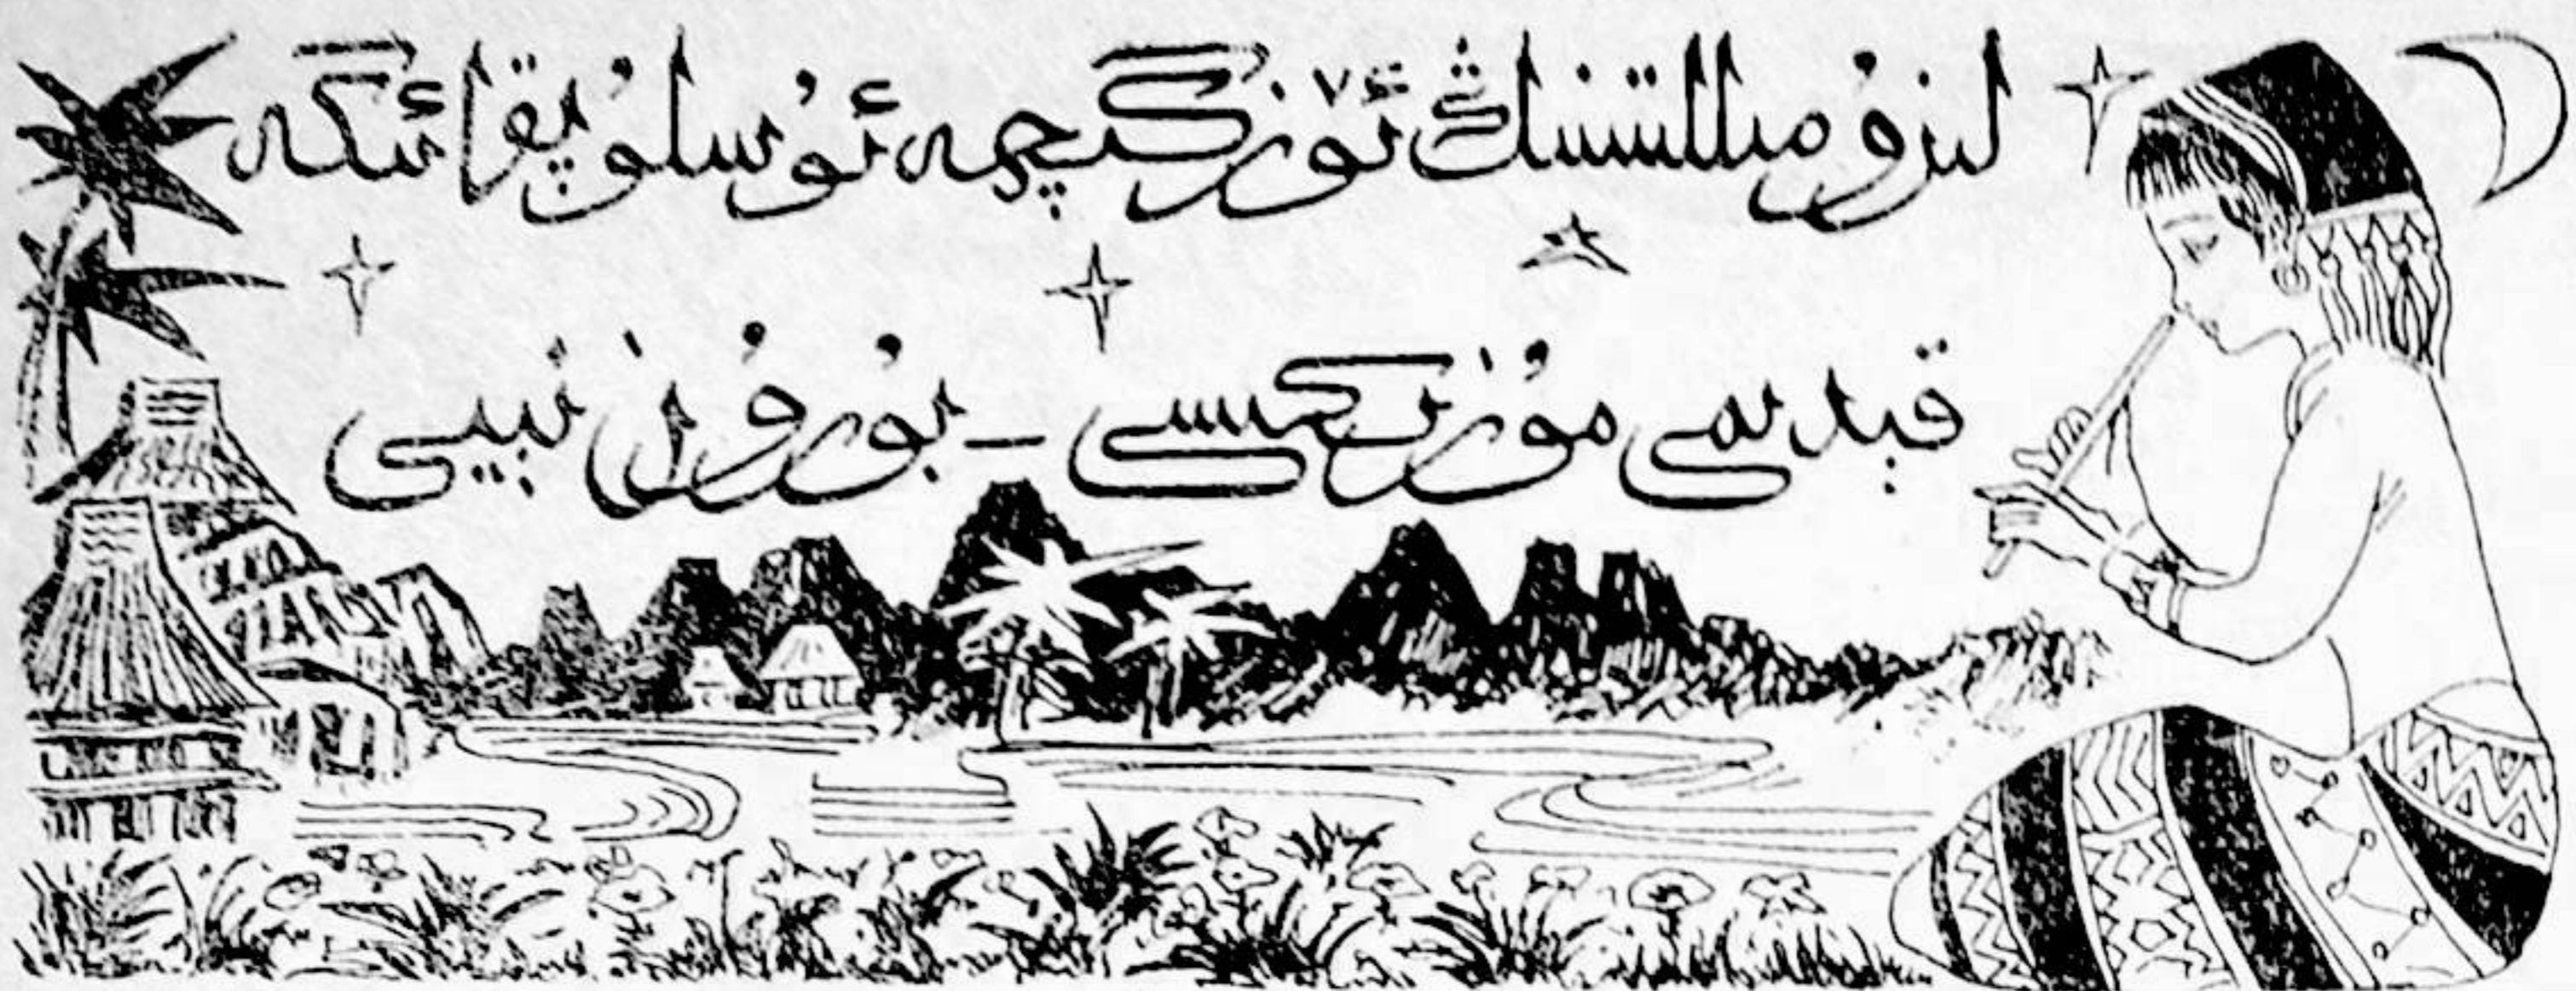 لىزۇ مىللىتىنىڭ ئۆزگىچە ئۇسلۇپقا ئىگە
قېدىمى مۇزىكىسى – بۇرۇن نېيى